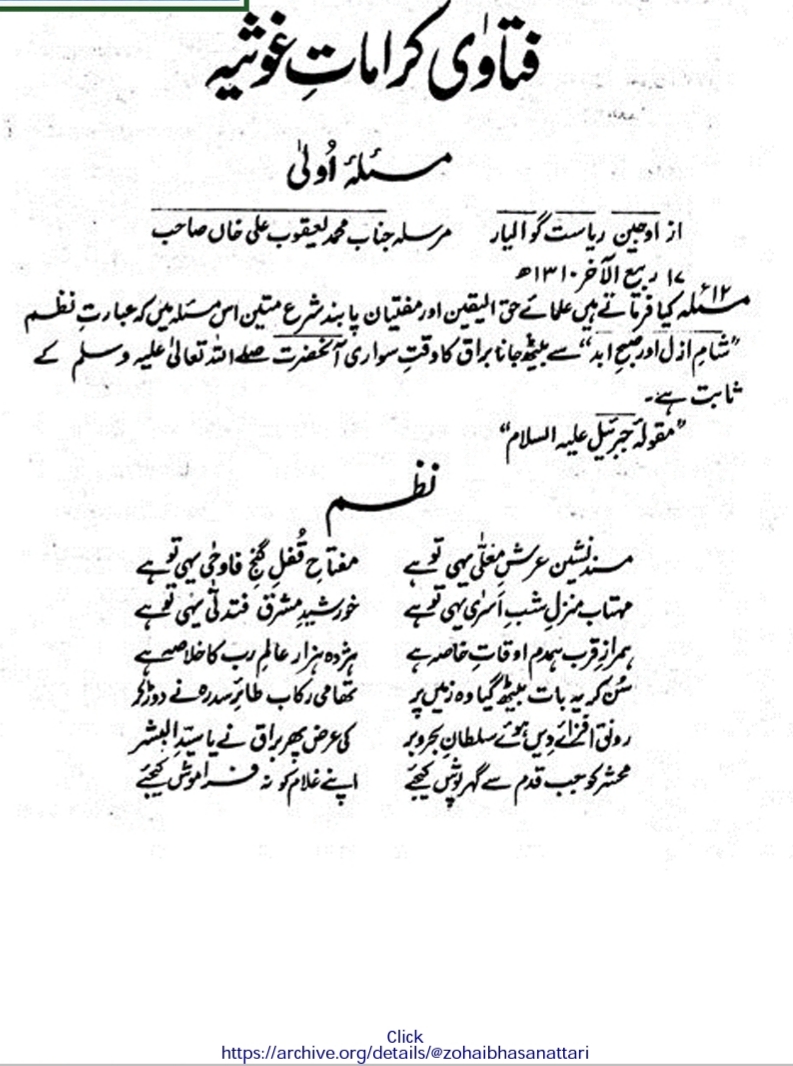 فتاوٰی کراماتِ غوثیہ
مسئلۂ اُولٰی
از اوجین ریاست گوالیار مرسلہ جناب محمد یعقوب علی خاں صاحب
۱۷ ربیع الآخر ۱۳۱۰ھ
مسئلہ ۱۲ء کیا فرماتے ہیں علمائے حق الیقین اور مفتیان پابند شرع متین اس مسئلہ میں کہ عبارتِ نظم
”شامِ ازل اور صبح ابد“ سے بیٹھ جانا براق کا وقتِ سواری آنحضرت صلے اللہ تعالٰی علیہ وسلم کے
ثابت ہے۔
”مقولۂ جبرئیل علیہ السلام“
نظم
مسند نشین عرشِ معلّٰی یہی تو ہے مفتاحِ قُفلِ گنجِ فاوحٰی یہی تو ہے
مہتاب منزلِ شبِ اَسرٰی یہی تو ہے خورشیدِ مشرق فتدلّٰی یہی تو ہے
ہمرازِ قرب ہمدم اوقاتِ خاصہ ہے ہژدہ ہزار عالمِ رب کا خلاصہ ہے
سُن کر یہ بات بیٹھ گیا وہ زمیں پر تھامی رکاب طائرِ سدرہ نے دوڑ کر
رونق افزائے دِیں ہوئے سلطانِ بحر و بر کی عرض پھر براق نے یا سیّد البشر
محشر کو جب قدم سے گہر پوش کیجئے اپنے غلام کو نہ فراموش کیجئے
Click
https://archive.org/details/@zohaibhasanattari